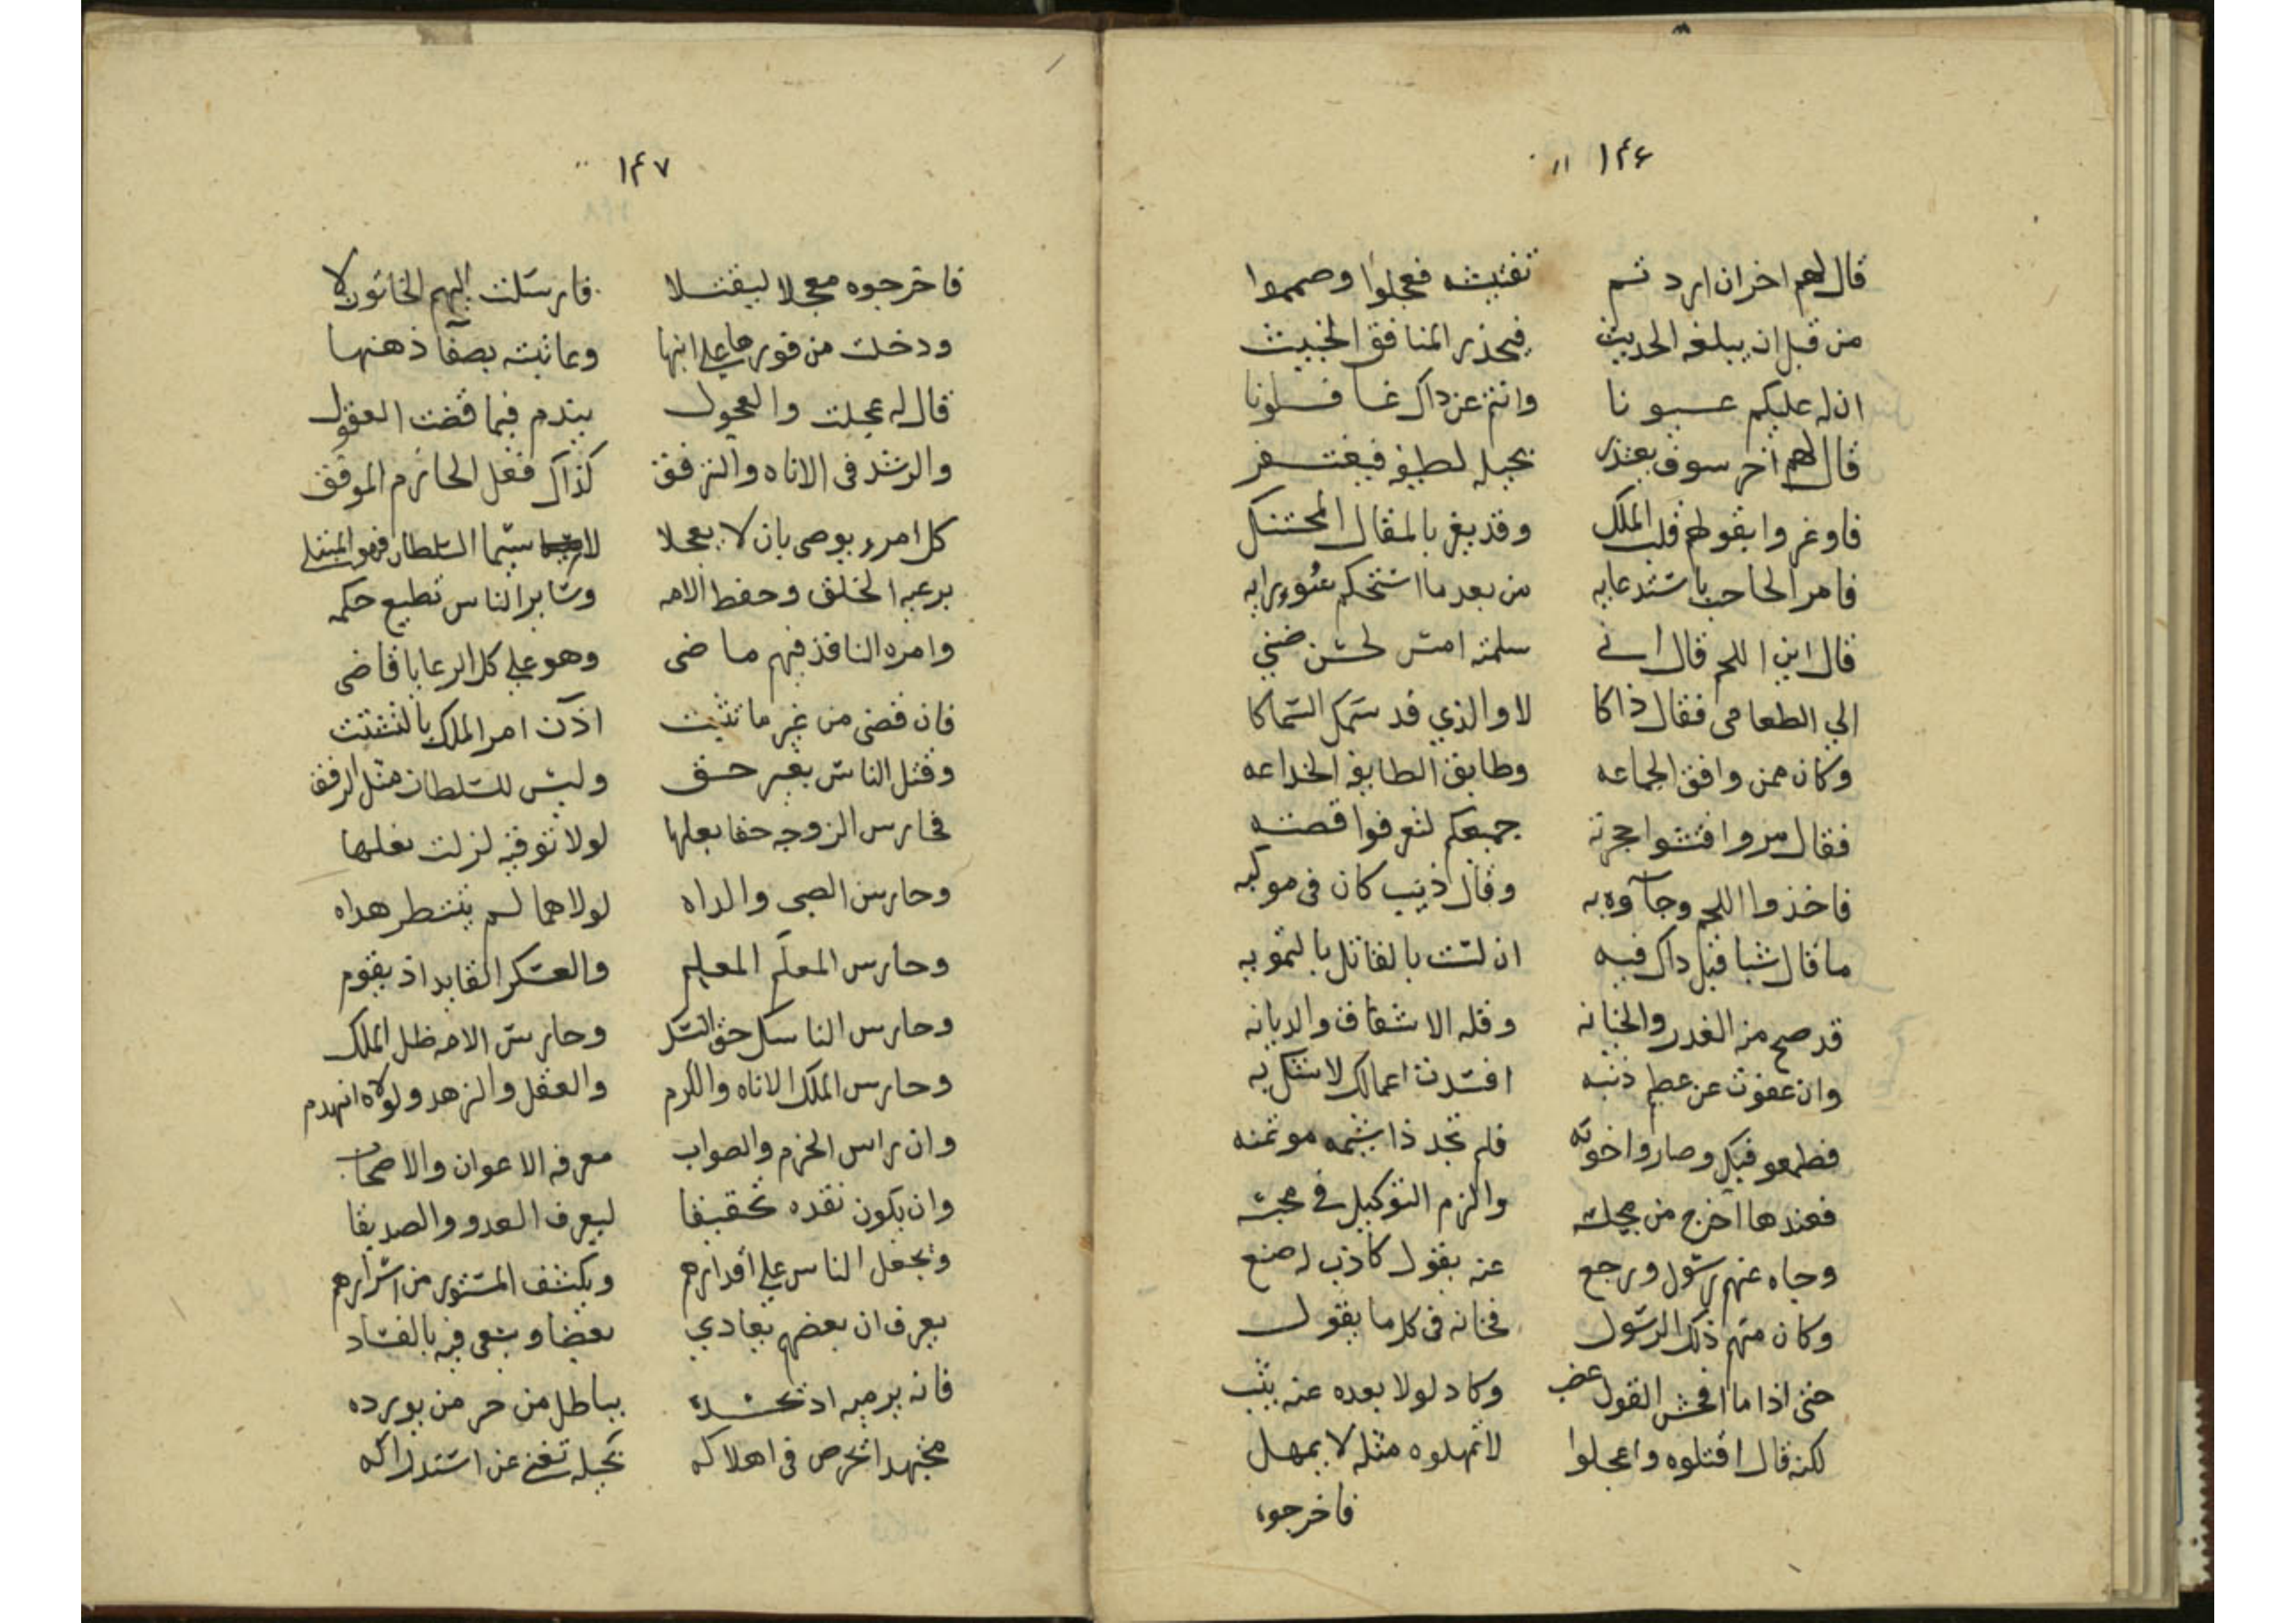 ١٤٦
قال لهم اخر ان اردتم تفتيشه فعجلوا وصمموا
من قبل ان يبلغه الحديث فيحذر المنافق الخبيث
ان له عليكم عيونا وانتم عن ذاك غافلونا
قال لهم آخر سوف يعتذر بحيله لطيفه فيغتفر
فاوغروا بقولهم قلب الملك وقد يغر بالمقال المحتنك
فامر الحاجب باستدعايه من بعد ما استحكم سوء رايه
قال اين اللحم قال انى سلمته امس لحسن ضنى
الي الطعامى فقال ذاكا لا والذي قد سمك السماكا
وكان ممن وافق الجماعه وطابق الطايفه الخداعه
فقال مروا فتشوا حجرته جميعكم لتعرفوا قصته
فاخذوا اللحم وجآوه به وقال ذيب كان فى موكبه
ما قال شيا قبل ذاك فيه ان لست بالقاتل بالتمويه
قد صح منه الغدر والخيانه وقله الاشفاق والديانه
وان عفوت عن عظيم ذنبه افسدت اعمالك لا تتكل به
فطمعو فيك وصاروا خونه فلم تجد ذا شيمه موتمنه
فعندها اخرج من مجلسه والزم التوكيل في محبسه
وجاه عنهم رسول ورجع عنه بقول كاذب له صنع
وكان منهم ذلك الرسول فخانه فى كل ما يقول
حتى اذا ما افحش القول غضب وكاد لولا بعده عنه يثب
لكنه قال اقتلوه واعجلوا لا تمهلوه مثله لا يمهل
فاخرجوه
١٤٧
فاخرجوه معجلا ليقتلا فارسلت اليهم الخاتون لا
ودخلت من فورها على ابنها وعاتبته بصفآ ذهنها
قال له عجلت والعجول يندم فيما قضت العقول
والرشد فى الاناه والترفق كذاك فعل الحازم الموفق
كل امرء يوصى بان لا يعجلا لا سيما السلطان فهو المبتلى
برعيه الخلق وحفظ الامه وساير الناس تطيع حكمه
وامره النافذ فيهم ماضى وهو على كل الرعايا قاضى
فان قضى من غير ما تثبت اذن امر الملك بالتشتت
وقتل الناس بغير حق وليس للسلطان مثل الرفق
فحارس الزوجه حقا بعلها لولا توقيه لزلت نعلها
وحارس الصبى والداه لولاهما لم ينتظر هداه
وحارس المعلَم المعلم والعسكر القايد اذ يقوم
وحارس الناسك حق النسك وحارس الامه ظل الملك
وحارس الملك الاناه والكرم والعقل والزهد ولولاه انهدم
وان راس الحزم والصواب معرفه الاعوان والاصحاب
وان يكون نقده تحقيقا ليعرف العدو والصديقا
ويجعل الناس على اقدارهم ويكشف المستور من اسرارهم
يعرف ان بعضهم يعادي بعضا ويسعى فيه بالفساد
فانه يرميه اذ يحسده بباطل من حر من يورده
مجتهدا يحرص فى اهلاكه بحيله تغنى عن استدراكه